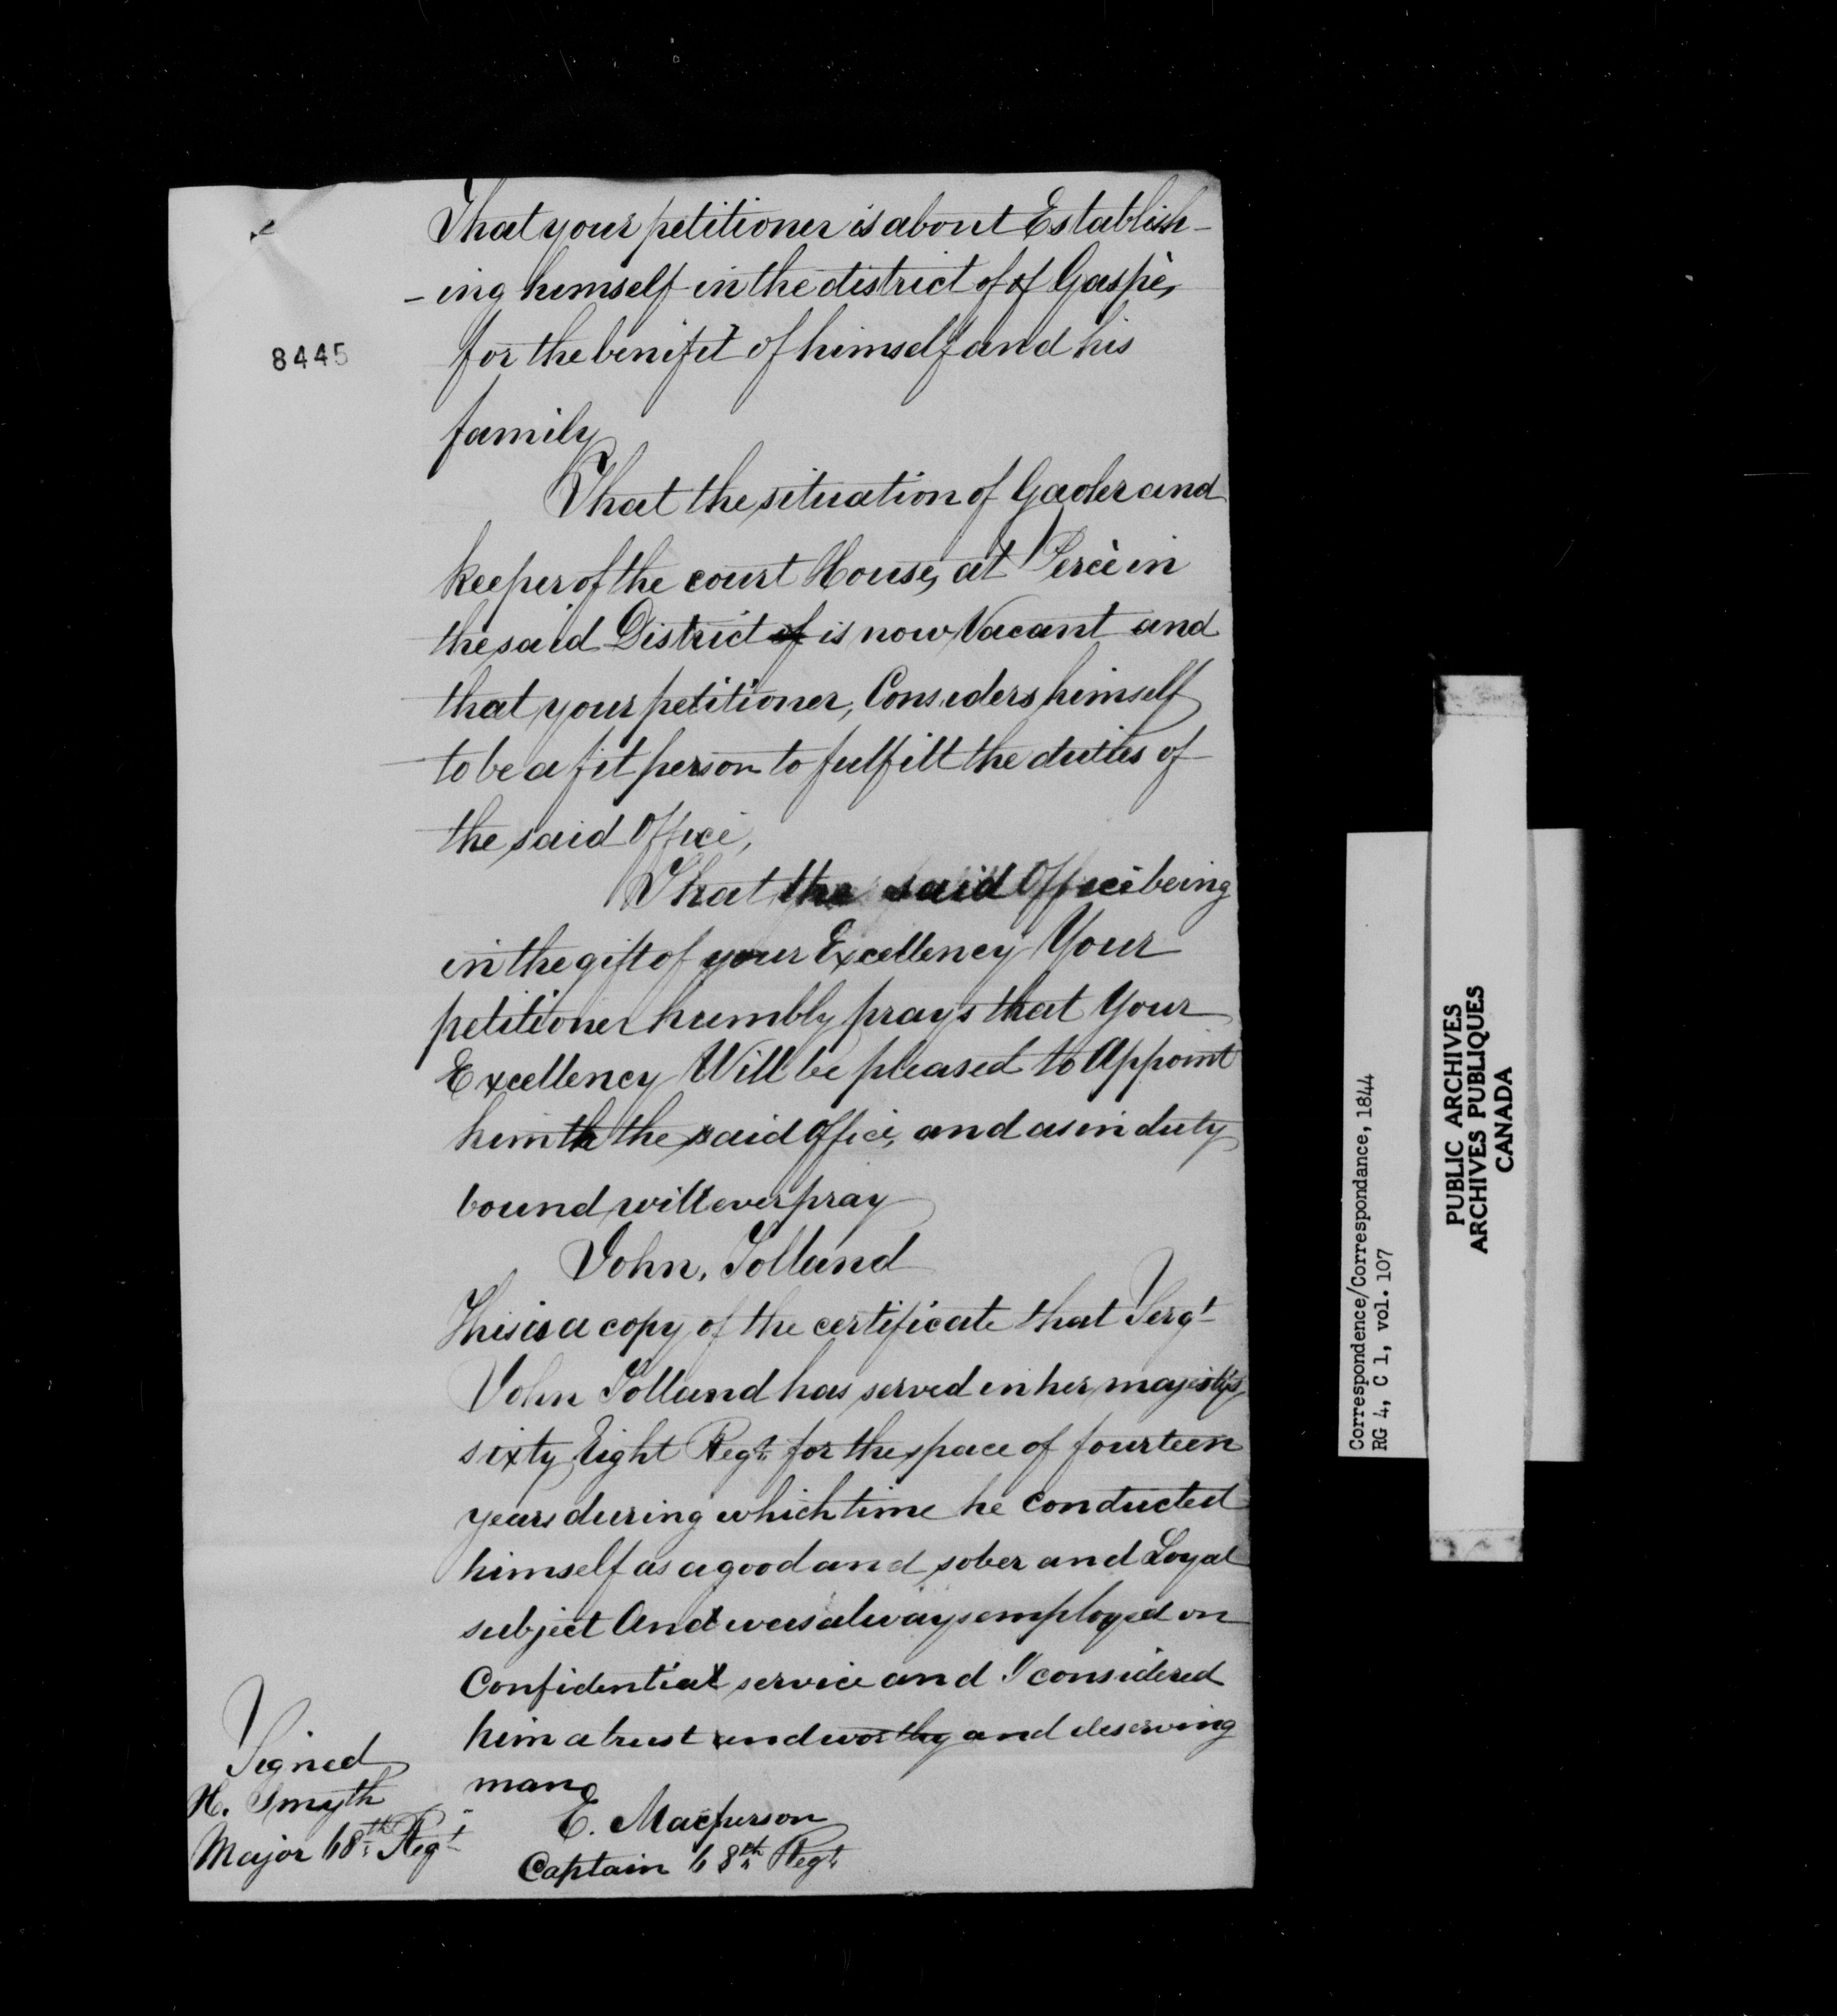 That your petitioner is about Establish-
-ing himself in the district of of Gaspè,
for the benifit of himself and his
family
That the situation of Gaoler and
keeper of the court House, at Percè in
the said District of is now Vacant and
that your petitioner, Considers himself
to be a fit person to fulfill the duties of
the said Office,
That the said Office being
in the gift of your Excellency Your
petitioner humbly prays that Your
Excellency Will be pleased to Appoint
him to the said office, and as in duty
bound will ever pray
John. Tolland
This is a copy of the certificate that Sergt
John Tolland has served in her majestys
sixty Eight Regt for the space of fourteen
years during which time he conducted
himself as a good and sober and Loyal
subject And was always employed on
Confidential service and I considered
him a trust and worthy and deserving
man
E. Macpurson
Captain 68th Regt
Signed
H. Smyth
Major 68th Regt
8445
Correspondence/Correspondance, 1844
RG 4, C 1, vol. 107
PUBLIC ARCHIVES
ARCHIVES PUBLIQUES
CANADA